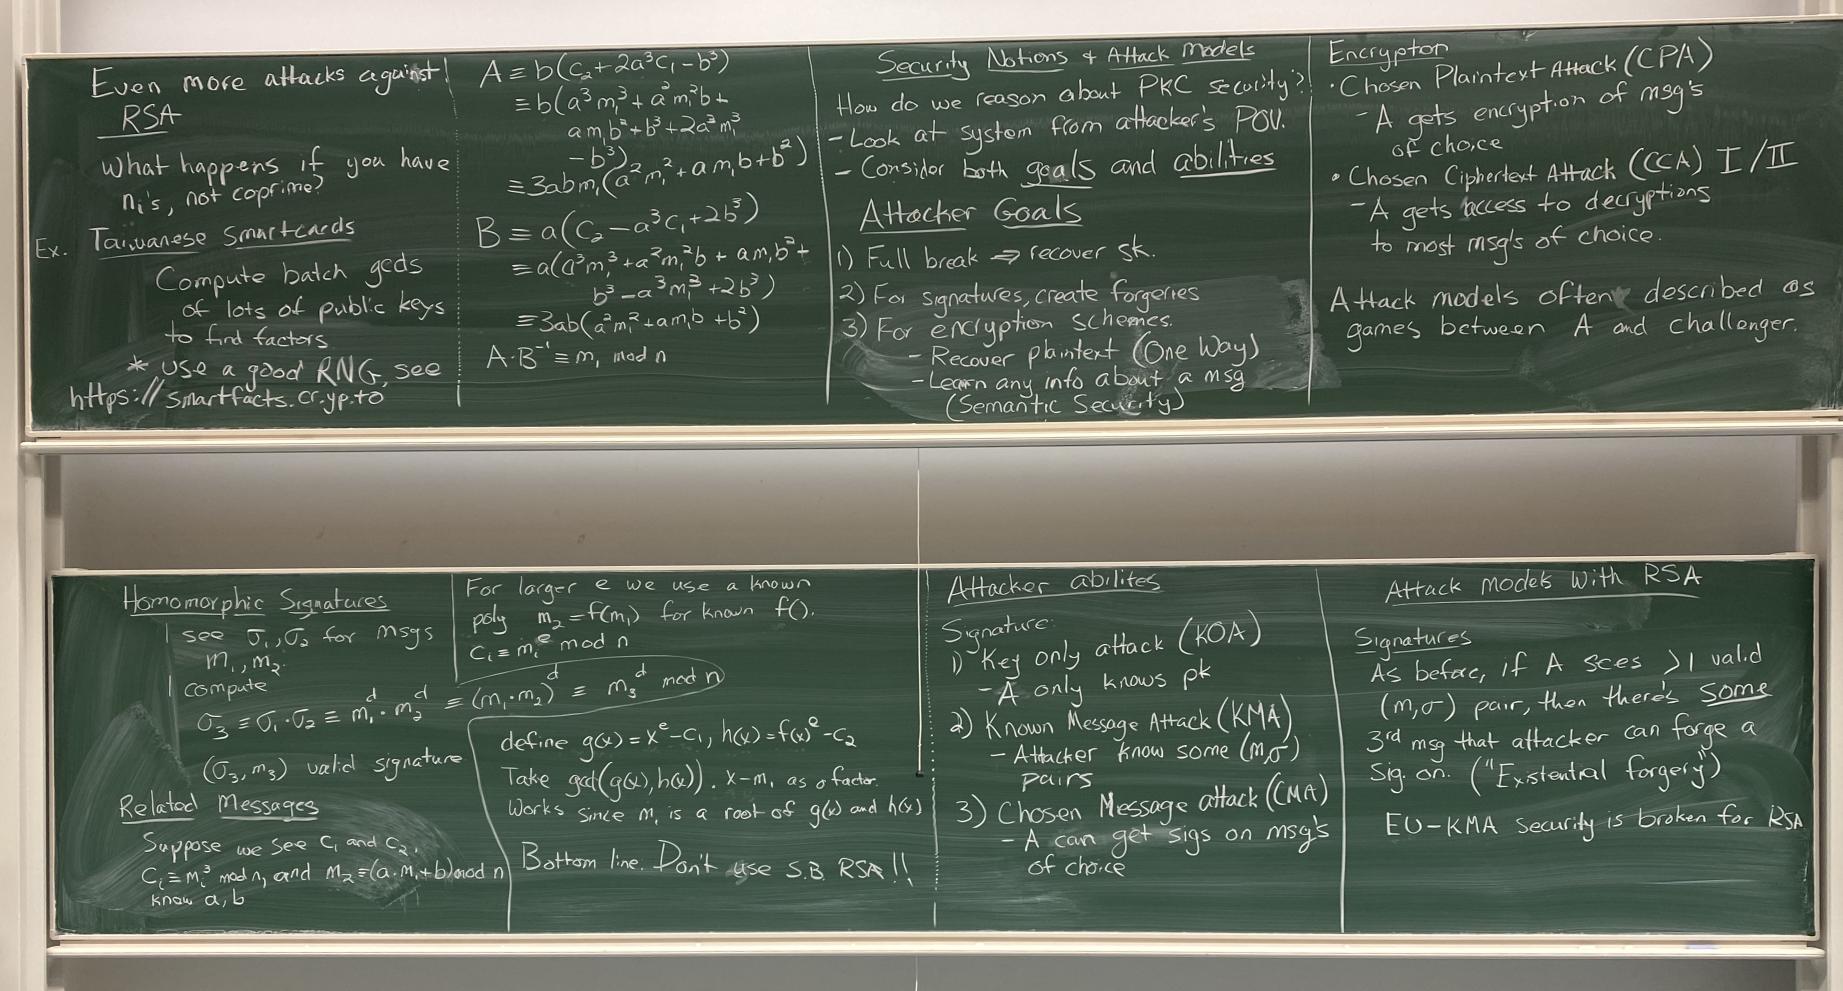 Even more attacks against
RSA
What happens if you have
nᵢ's, not coprime?
Ex. Taiwanese Smartcards
Compute batch gcds
of lots of public keys
to find factors
* use a good RNG, see
https://smartfacts.cr.yp.to
A ≡ b(c₂+2a³c₁-b³)
≡ b(a³m₁³+a²m₁²b+
am₁b²+b³+2a³m₁³
-b³)
≡ 3abm₁(a²m₁²+am₁b+b²)
B ≡ a(c₂-a³c₁+2b³)
≡ a(a³m₁³+a²m₁²b+am₁b²+
b³-a³m₁³+2b³)
≡ 3ab(a²m₁²+am₁b+b²)
A·B⁻¹ ≡ m₁ mod n
Security Notions & Attack Models
How do we reason about PKC security?
- Look at system from attacker's POV.
- Consider both goals and abilities
Attacker Goals
1) Full break ⇒ recover sk.
2) For signatures, create forgeries
3) For encryption schemes.
- Recover plaintext (One Way)
- Learn any info about a msg
(Semantic Security)
Encrypton
• Chosen Plaintext Attack (CPA)
- A gets encryption of msg's
of choice
• Chosen Ciphertext Attack (CCA) I/II
- A gets access to decryptions
to most msg's of choice.
Attack models often described as
games between A and challenger.
Homomorphic Signatures
see σ₁,σ₂ for msgs
m₁,m₂.
compute
σ₃ ≡ σ₁·σ₂ ≡ m₁ᵈ·m₂ᵈ ≡ (m₁·m₂)ᵈ ≡ m₃ᵈ mod n
(σ₃,m₃) valid signature
Related Messages
Suppose we see c₁ and c₂,
cᵢ≡mᵢ³ mod n, and m₂≡(a·m₁+b) mod n
know a,b
For larger e we use a known
poly m₂=f(m₁) for known f().
cᵢ≡mᵢᵉ mod n
define g(x)=xᵉ-c₁, h(x)=f(x)ᵉ-c₂
Take gcd(g(x),h(x)). x-m₁ as a factor.
Works since m₁ is a root of g(x) and h(x)
Bottom line. Don't use S.B. RSA!!
Attacker abilites
Signature:
1) Key only attack (KOA)
- A only knows pk
2) Known Message Attack (KMA)
- Attacker know some (m,σ)
pairs
3) Chosen Message attack (CMA)
- A can get sigs on msg's
of choice
Attack models with RSA
Signatures
As before, if A sees >1 valid
(m,σ) pair, then there's some
3rd msg that attacker can forge a
Sig. on. ("Existential forgery")
EU-KMA security is broken for RSA